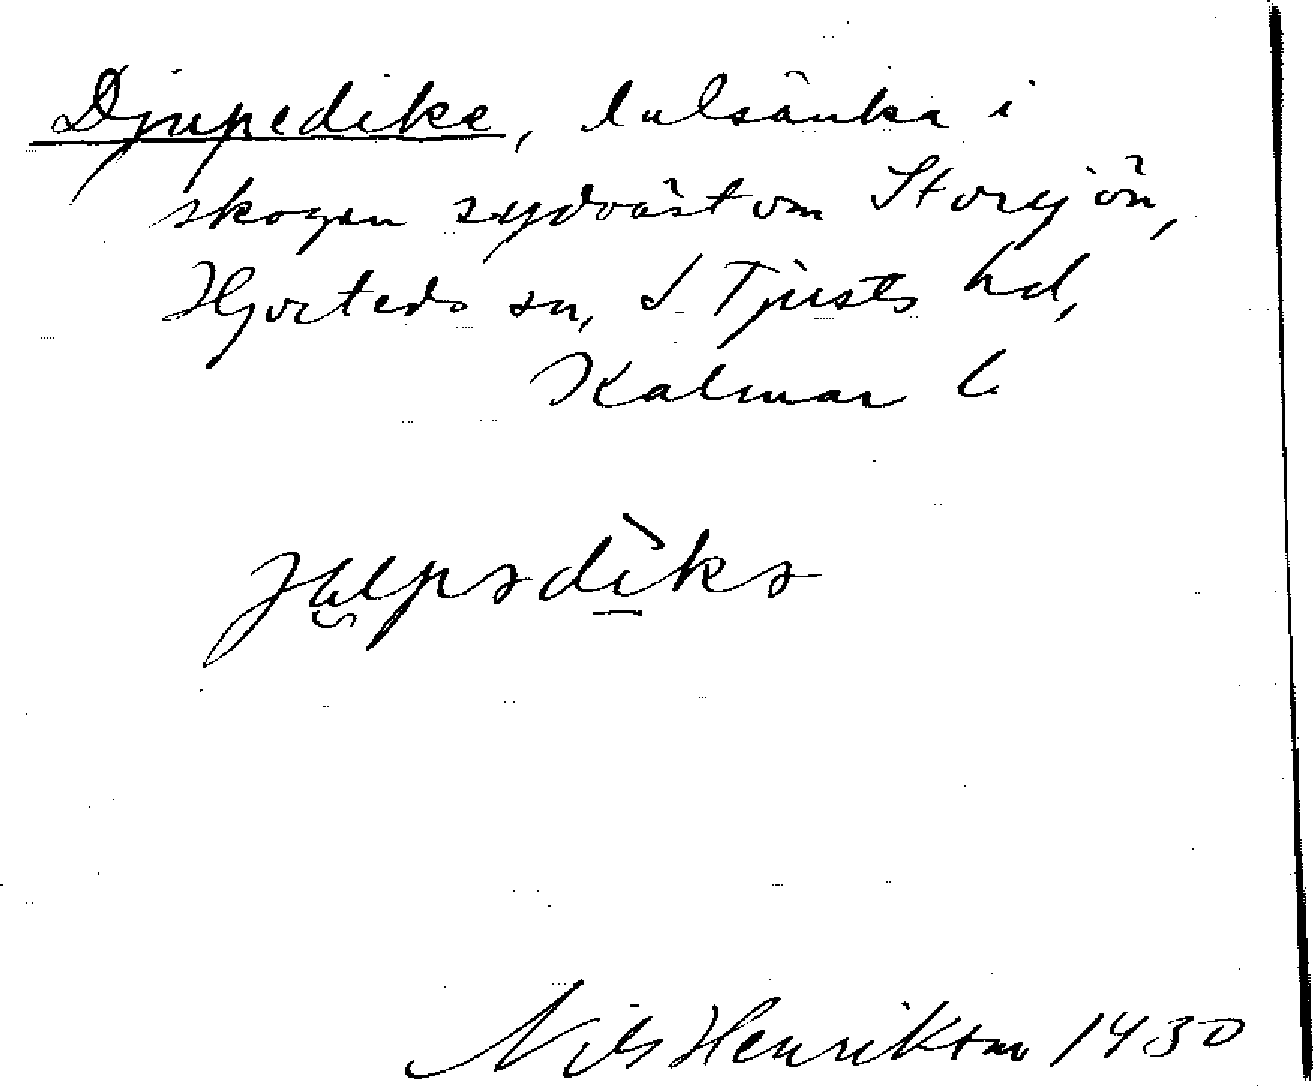 Djupedike, dalsänka i
skogen sydväst om Storsjön,
Hjorteds sn, S Tjusts hd,
Kalmar l.
Nils Henriksson 1930